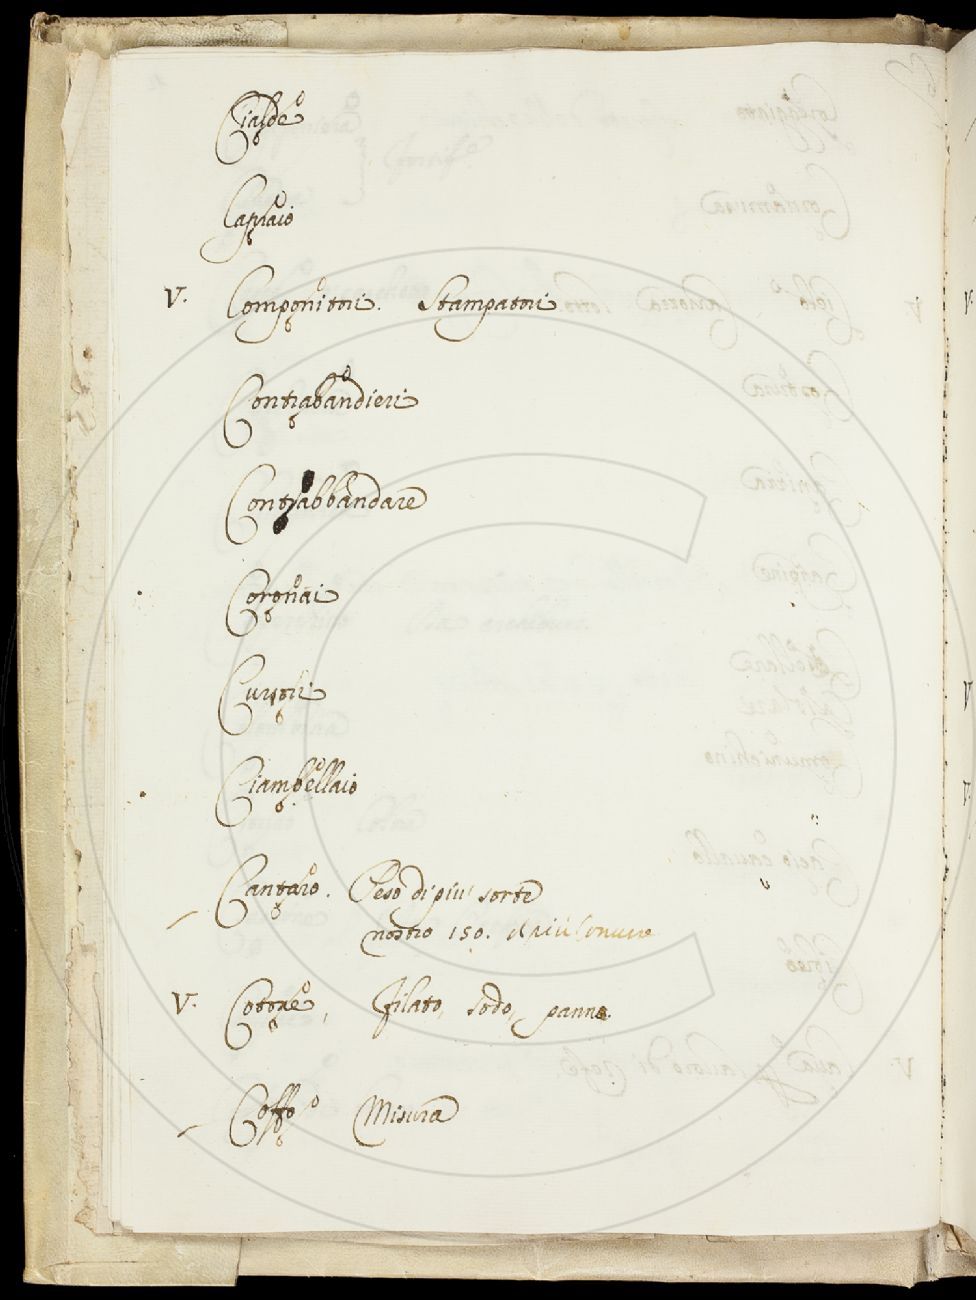 Cialde
Capraio
V. Componitori. Stampatori
Contrabandieri
Contrabbandare
Coronai
Ciambellaio
Cantaro. Peso di piu' sorte
nostro 150. il più comune
V. Cotone, filato, sodo, panno
Coffo Misura